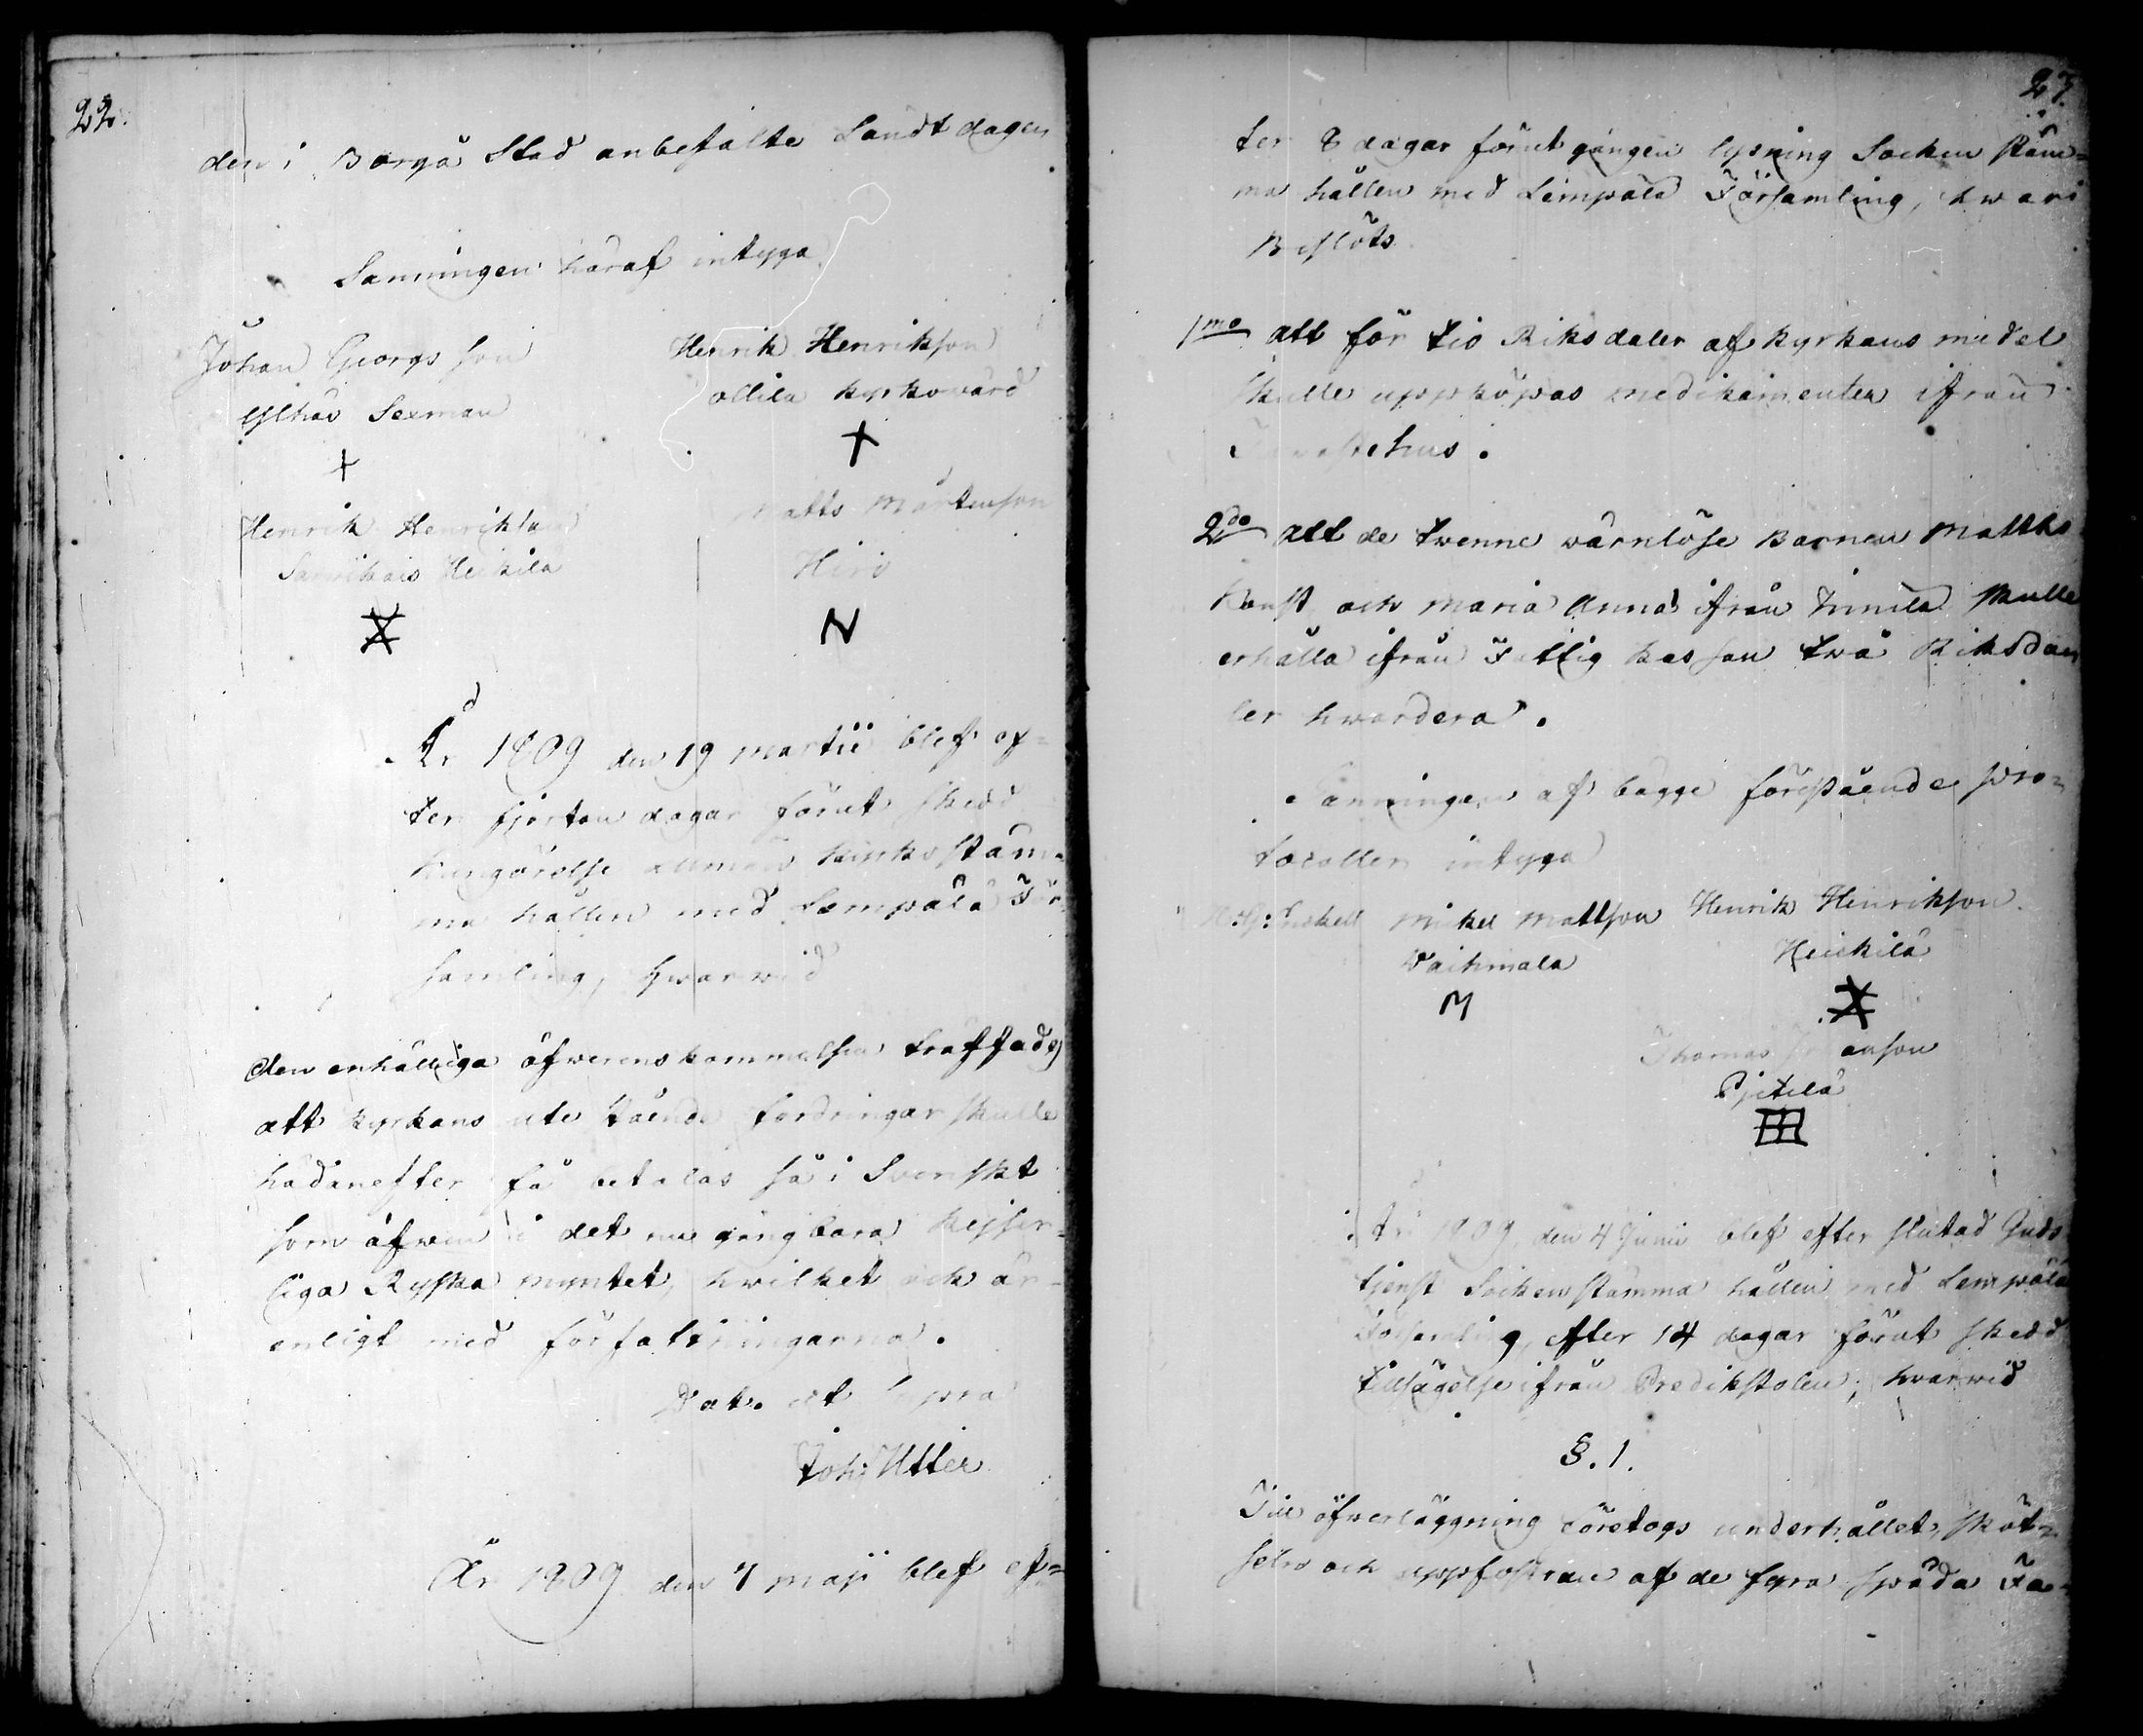 22.
den i Borgå Stad anbefalte Landtdagen
Sanningen häraf intyga
Johan Georgs son
Sexman
+
Henrik Henrikson
ollila kyrkovärd
+
Henrik Henrikson
Heikila
Matts Mårtenson
Hiro
N
År 1809 den 19 martii blef ef=
ter fjorton dagar förut skedd
kungörelse allmän kirkostäm=
ma hållen med Lempälä För=
samling, hwarwid
den enhälliga öfwerenskommelsen träffades
att kyrkans ute stående fordringar skulle
hädanefter få betalas så i Svenskt
som äfwen i det nu gångbara Kejser=
liga Ryska myntet, hwilket ock är
enligt med författningarna.
Dat. ut supra
Joh: Utter
År 1809 den 7 maji blef ef=
23.
ter 8 dagar förut gången lysning Socken stäm=
ma hållen med Lempälä Församling, hwari
Beslöts
1mo att för tio Riksdaler af kyrkans medel
skulle uppköpas medikamenter ifrån
Tavastehus.
2do att de twenne wärnlöse Barnen Matths
och Maria Anna ifrån skulle
erhålla ifrån Fattig kassan två Riksda=
ler hwardera.
Sanningen af bägge förestående pro=
tocoller intyga
Mikel Mattson
Vaihmala
M
Henrik Henrikson
Heickilä
Thomas
Pjetilä
År 1809 den 4 Junii blef efter slutad Guds
tjenst Sockenstämma hållen med Lempälä
Församling, efter 14 dagar förut skedd
tillsägelse ifrån Predikstolen; hwarwid
§. 1.
Till öfwerläggning företogs underhållet, sköt=
seln och uppfostran af de fyra späda Fa=